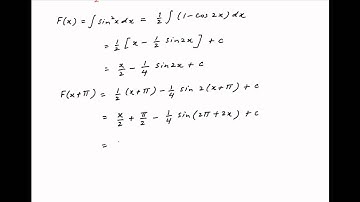 F(x) = ∫ sin²x dx = 1/2 ∫ (1 - cos 2x) dx
= 1/2 [x - 1/2 sin 2x] + c
= x/2 - 1/4 sin 2x + c
F(x+π) = 1/2 (x+π) - 1/4 sin 2(x+π) + c
= x/2 + π/2 - 1/4 sin(2π + 2x) + c
=